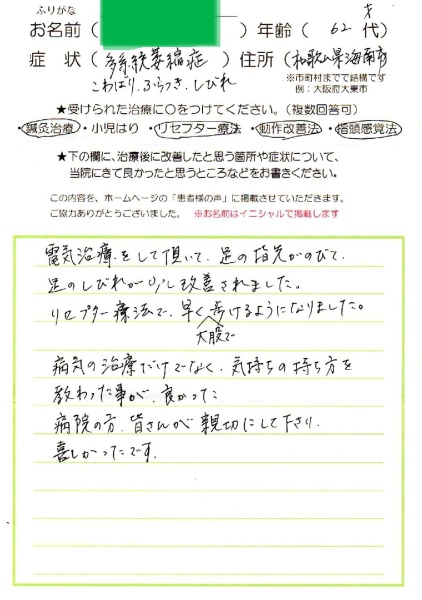 ふりがな
お名前（　　）年齢（62才代）
症　状（多系統萎縮症）住所（和歌山県海南市）
こわばり、ふらつき、しびれ
※市町村までで結構です
例：大阪府大東市
★受けられた治療に〇をつけてください。（複数回答可）
・鍼灸治療・小児はり・リセプター療法・動作改善法・指頭感覚法
★下の欄に、治療後に改善したと思う箇所や症状について、
当院にきて良かったと思うところなどをお書きください。
この内容を、ホームページの「患者様の声」に掲載させていただきます。
ご協力ありがとうございました。 ※お名前はイニシャルで掲載します
電気治療をして頂いて、足の指先がのびて、
足のしびれが少し改善されました。
リセプター療法で、早く歩けるようになりました。
大股で
病気の治療だけでなく、気持ちの持ち方を
教わった事が、良かった
病院の方、皆さんが親切にして下さり
喜しかったです。